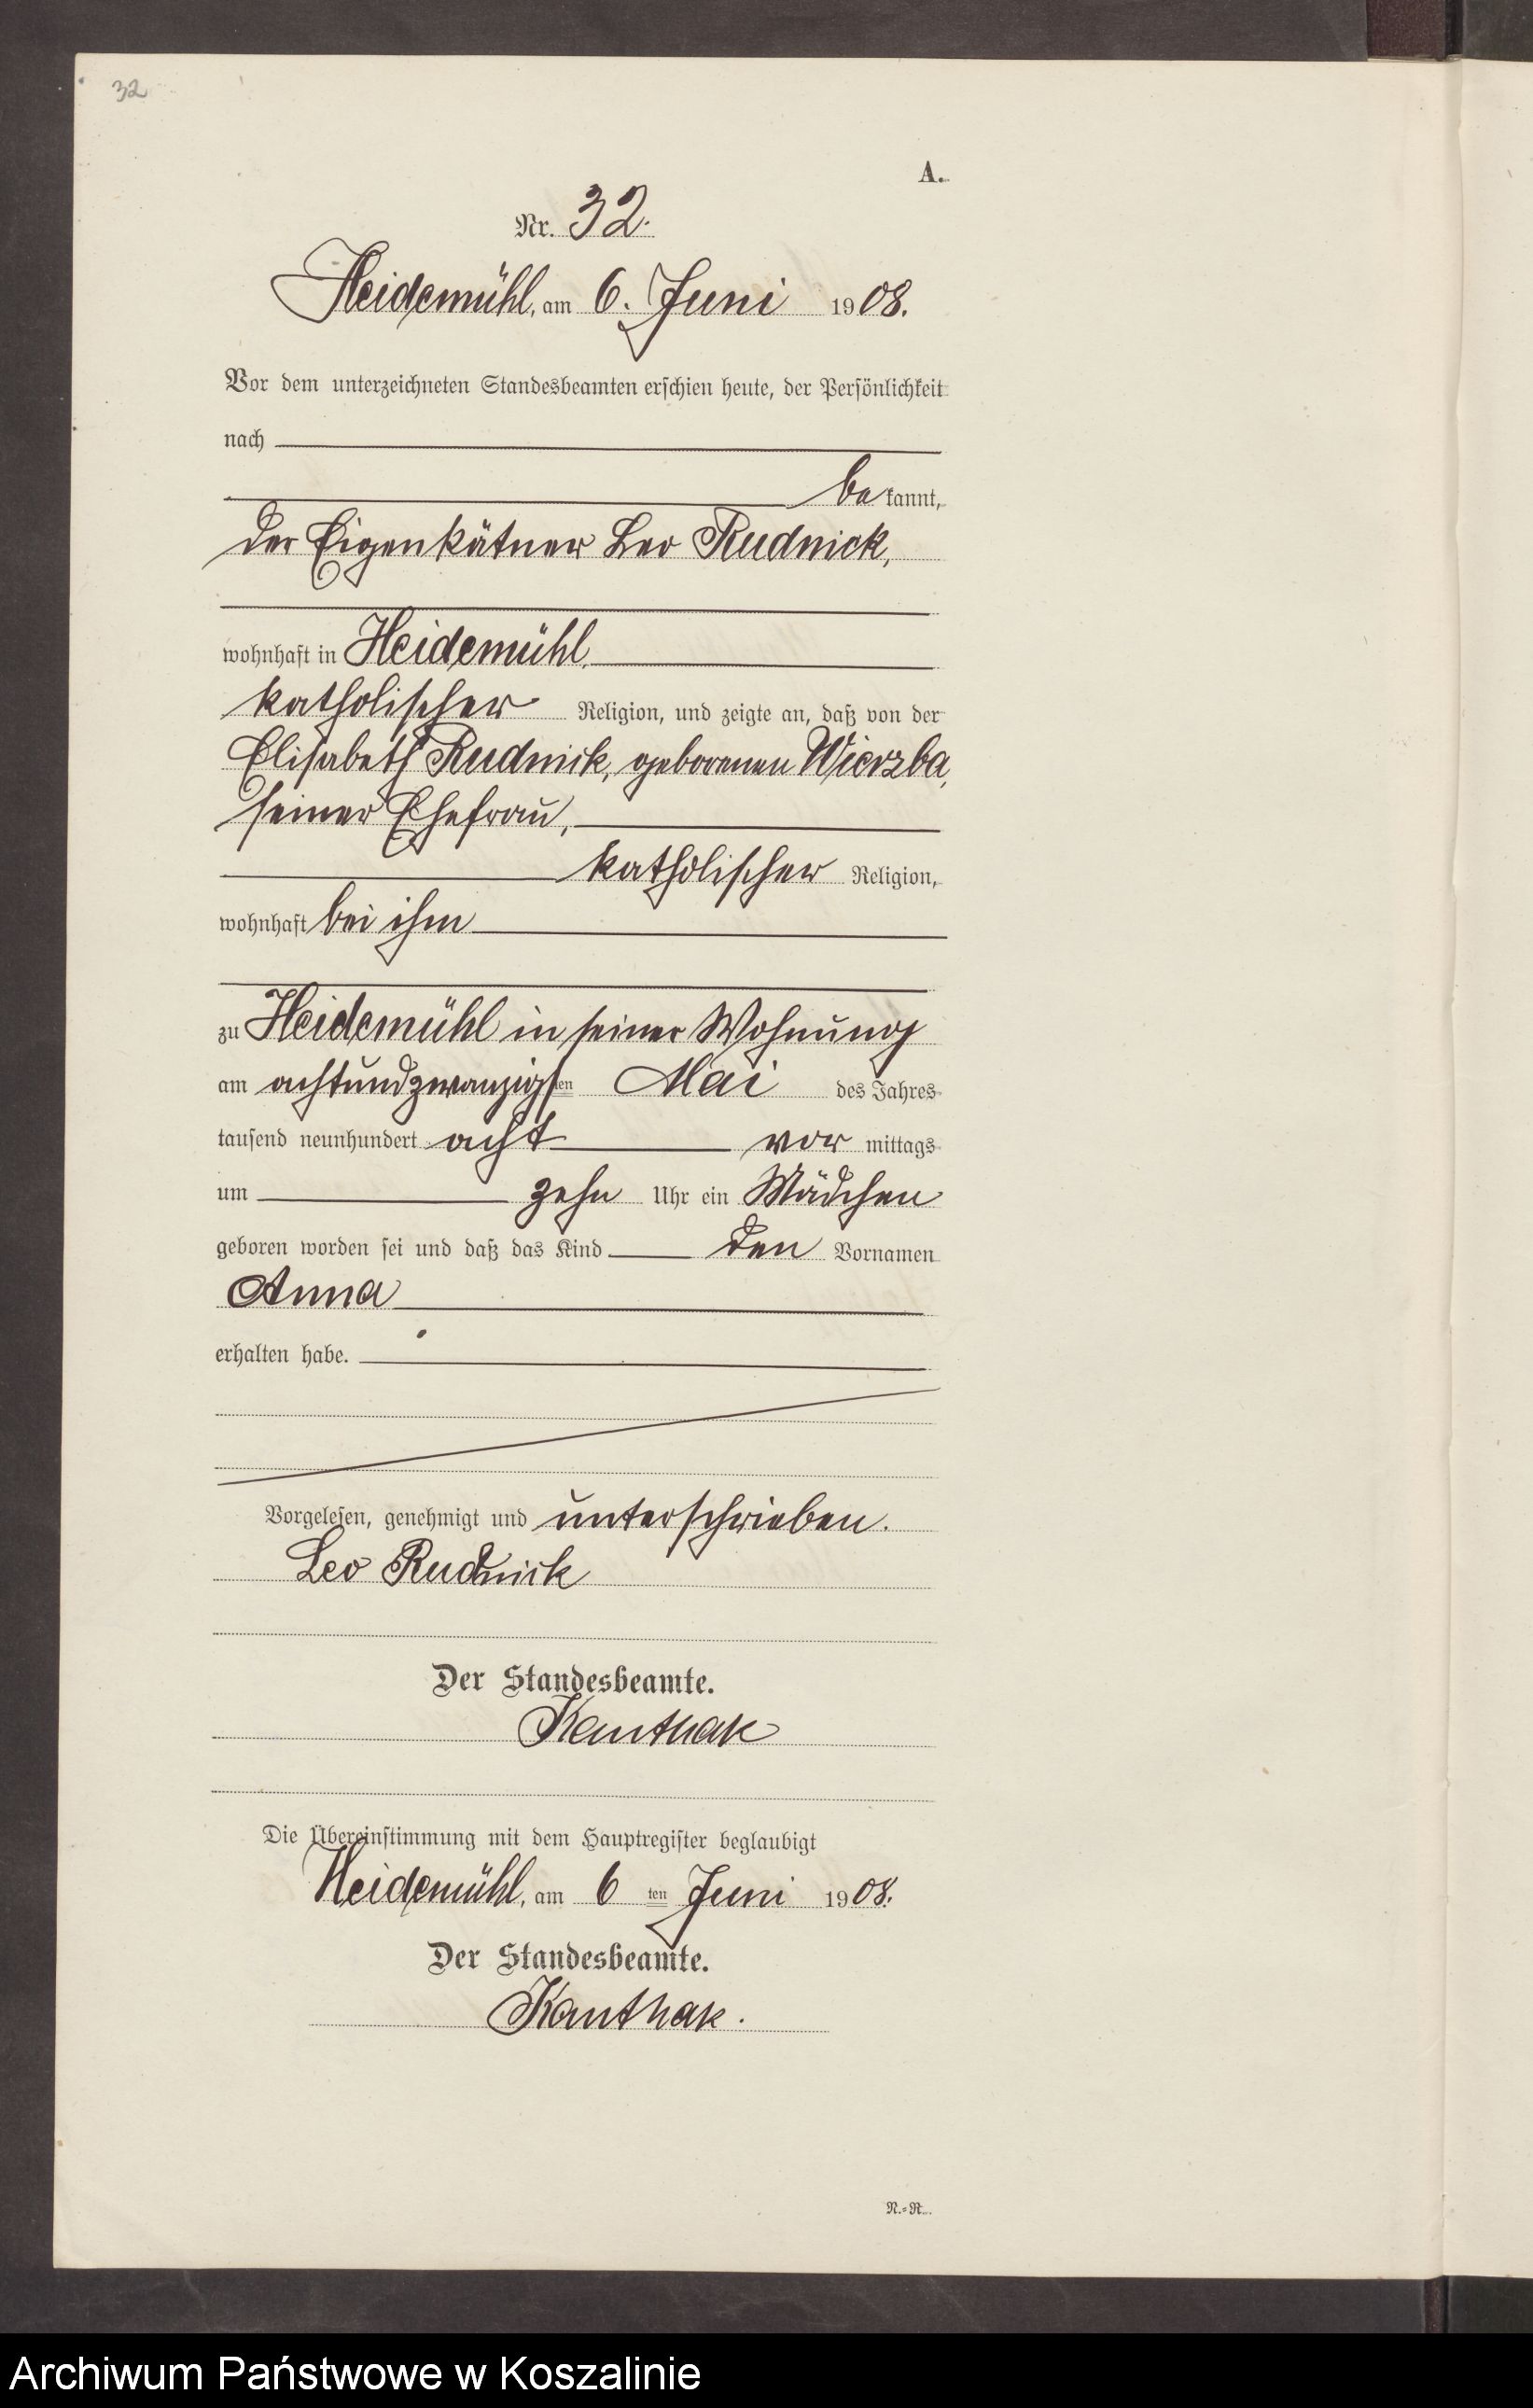 32
A.
Nr. 32.
Heidemühl, am 6. Juni 1908.
Vor dem unterzeichneten Standesbeamten erschien heute, der Persönlichkeit
nach
bekannt,
der Eigenkätner Leo Rudnick,
wohnhaft in Heidemühl,
katholischer Religion, und zeigte an, daß von der
Elisabeth Rudnick, geborenen Wierzba,
seiner Ehefrau,
katholischer Religion,
wohnhaft bei ihm
zu Heidemühl in seiner Wohnung
am achtundzwanzigsten Mai des Jahres
tausend neunhundert acht vormittags
um zehn Uhr ein Mädchen
geboren worden sei und daß das Kind den Vornamen
Anna
erhalten habe.
Vorgelesen, genehmigt und unterschrieben.
Leo Rudnick
Der Standesbeamte.
Kanthak
Die Übereinstimmung mit dem Hauptregister beglaubigt
Heidemühl, am 6ten Juni 1908.
Der Standesbeamte.
Kanthak.
N.=R.
Archiwum Państwowe w Koszalinie